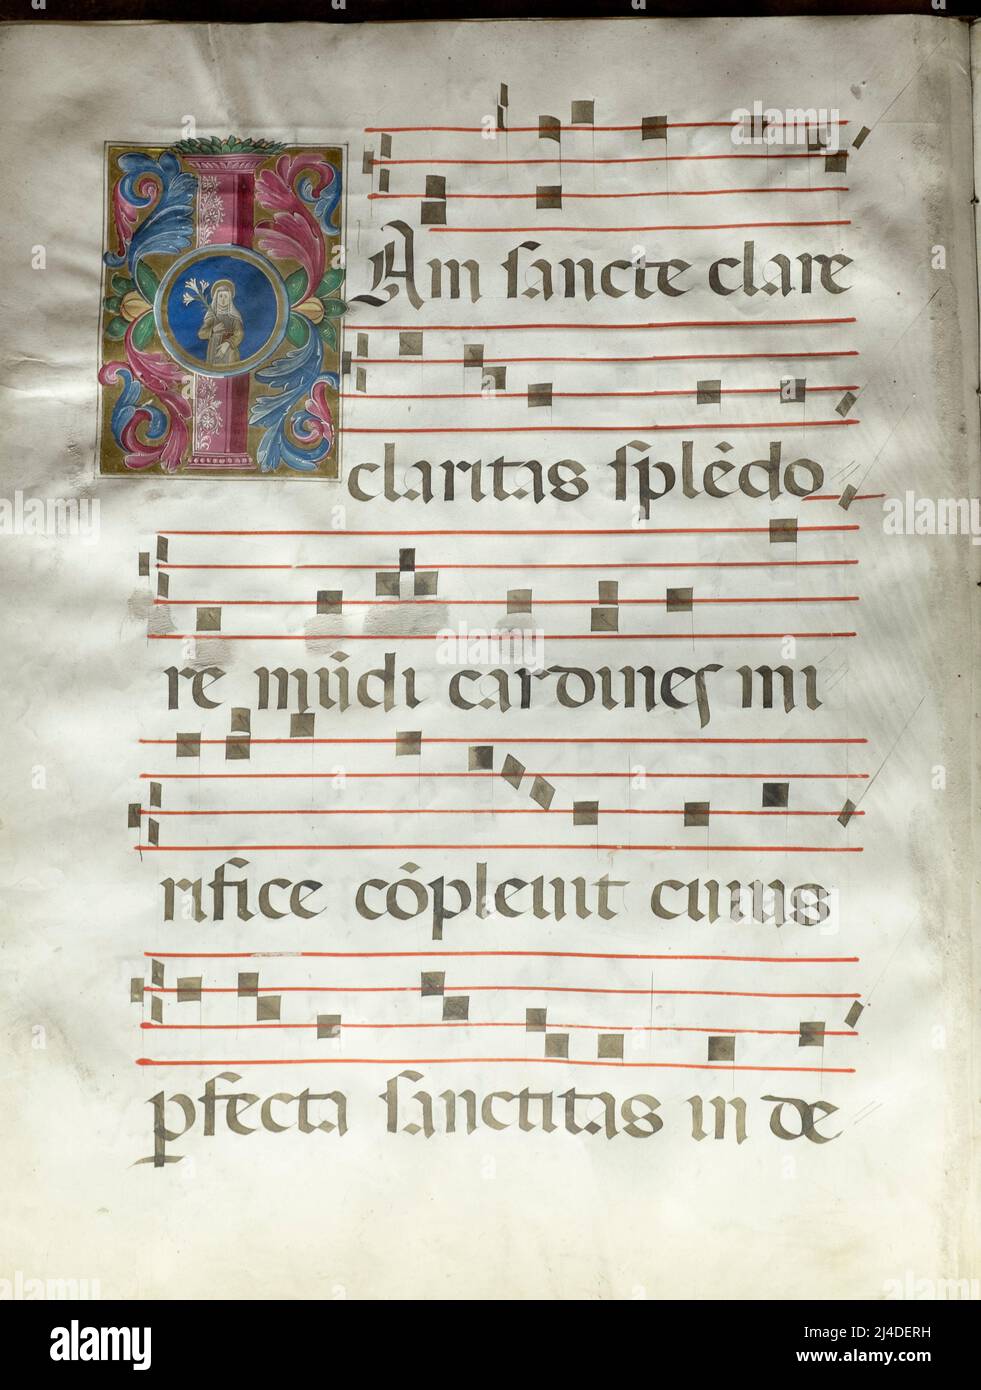 IAm sancte clare
claritas splēdo
re mūdi cardines mi
rifice cōpleuit cuius
pfecta sanctitas in de
alamy
Image ID: 2J4DERH
www.alamy.com